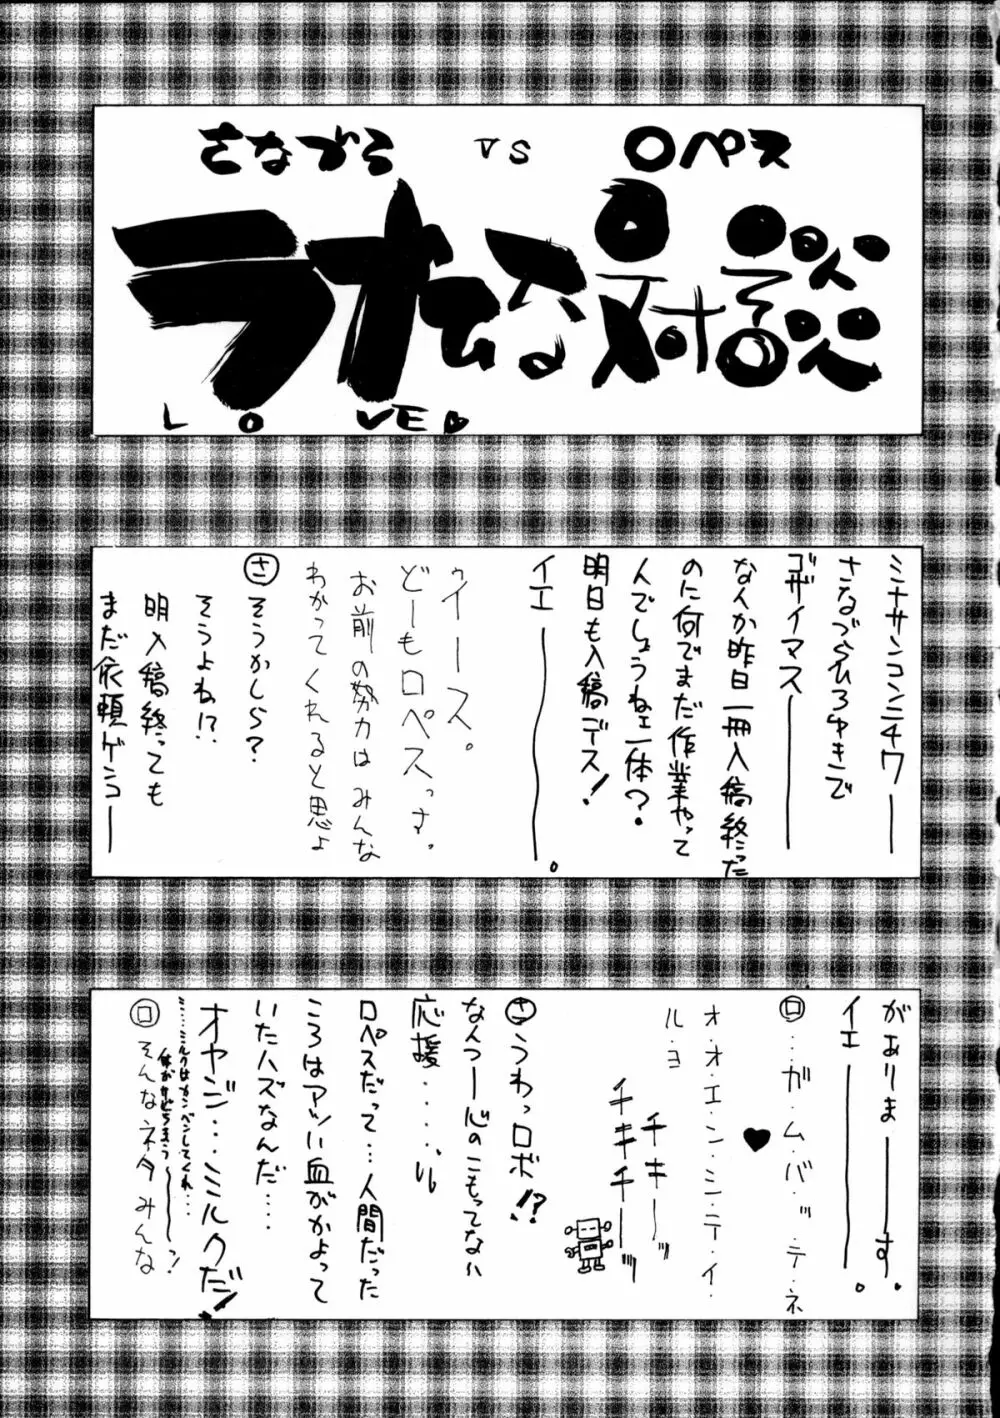 さなづら VS ロペス
ラオむる対談
LOVE♥
ミナサンコンニチワ――
さなづらひろゆきで
ゴザイマス――
なんか昨日一冊入稿終った
のに何でまだ作業やって
んでしょうねェ一体?
明日も入稿デス!
イエ――。
ウイース。
どーもロペスっす。
お前の努力はみんな
わかってくれると思よ
さ そうかしら?
そうよね!?
明入稿終っても
まだ依頼ゲンコ――
がありま――す。
イエ――。
ロ …ガ・ム・バ・ッ・テ・ネ
♥
オ・オ・エ・ン・シ・テ・イ・
ル・ヨ
チキーッ
チキチーッ
さ うわっロボ!?
なんつー心のこもってない
応援‥‥‥い。
ロペスだって…人間だった
ころはアツい血がかよって
いたハズなんだ…
オヤジ…ミルクだ!
ミルクはカンベンしてくれ…
ロ そんなネタみんな